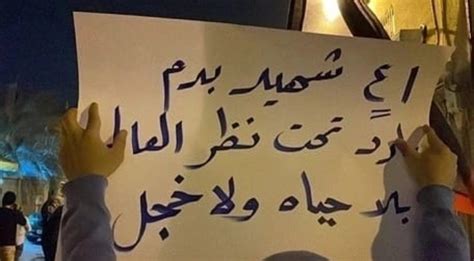 شهيد بدم
تحت نظر العال
بلا حياه ولا خجل